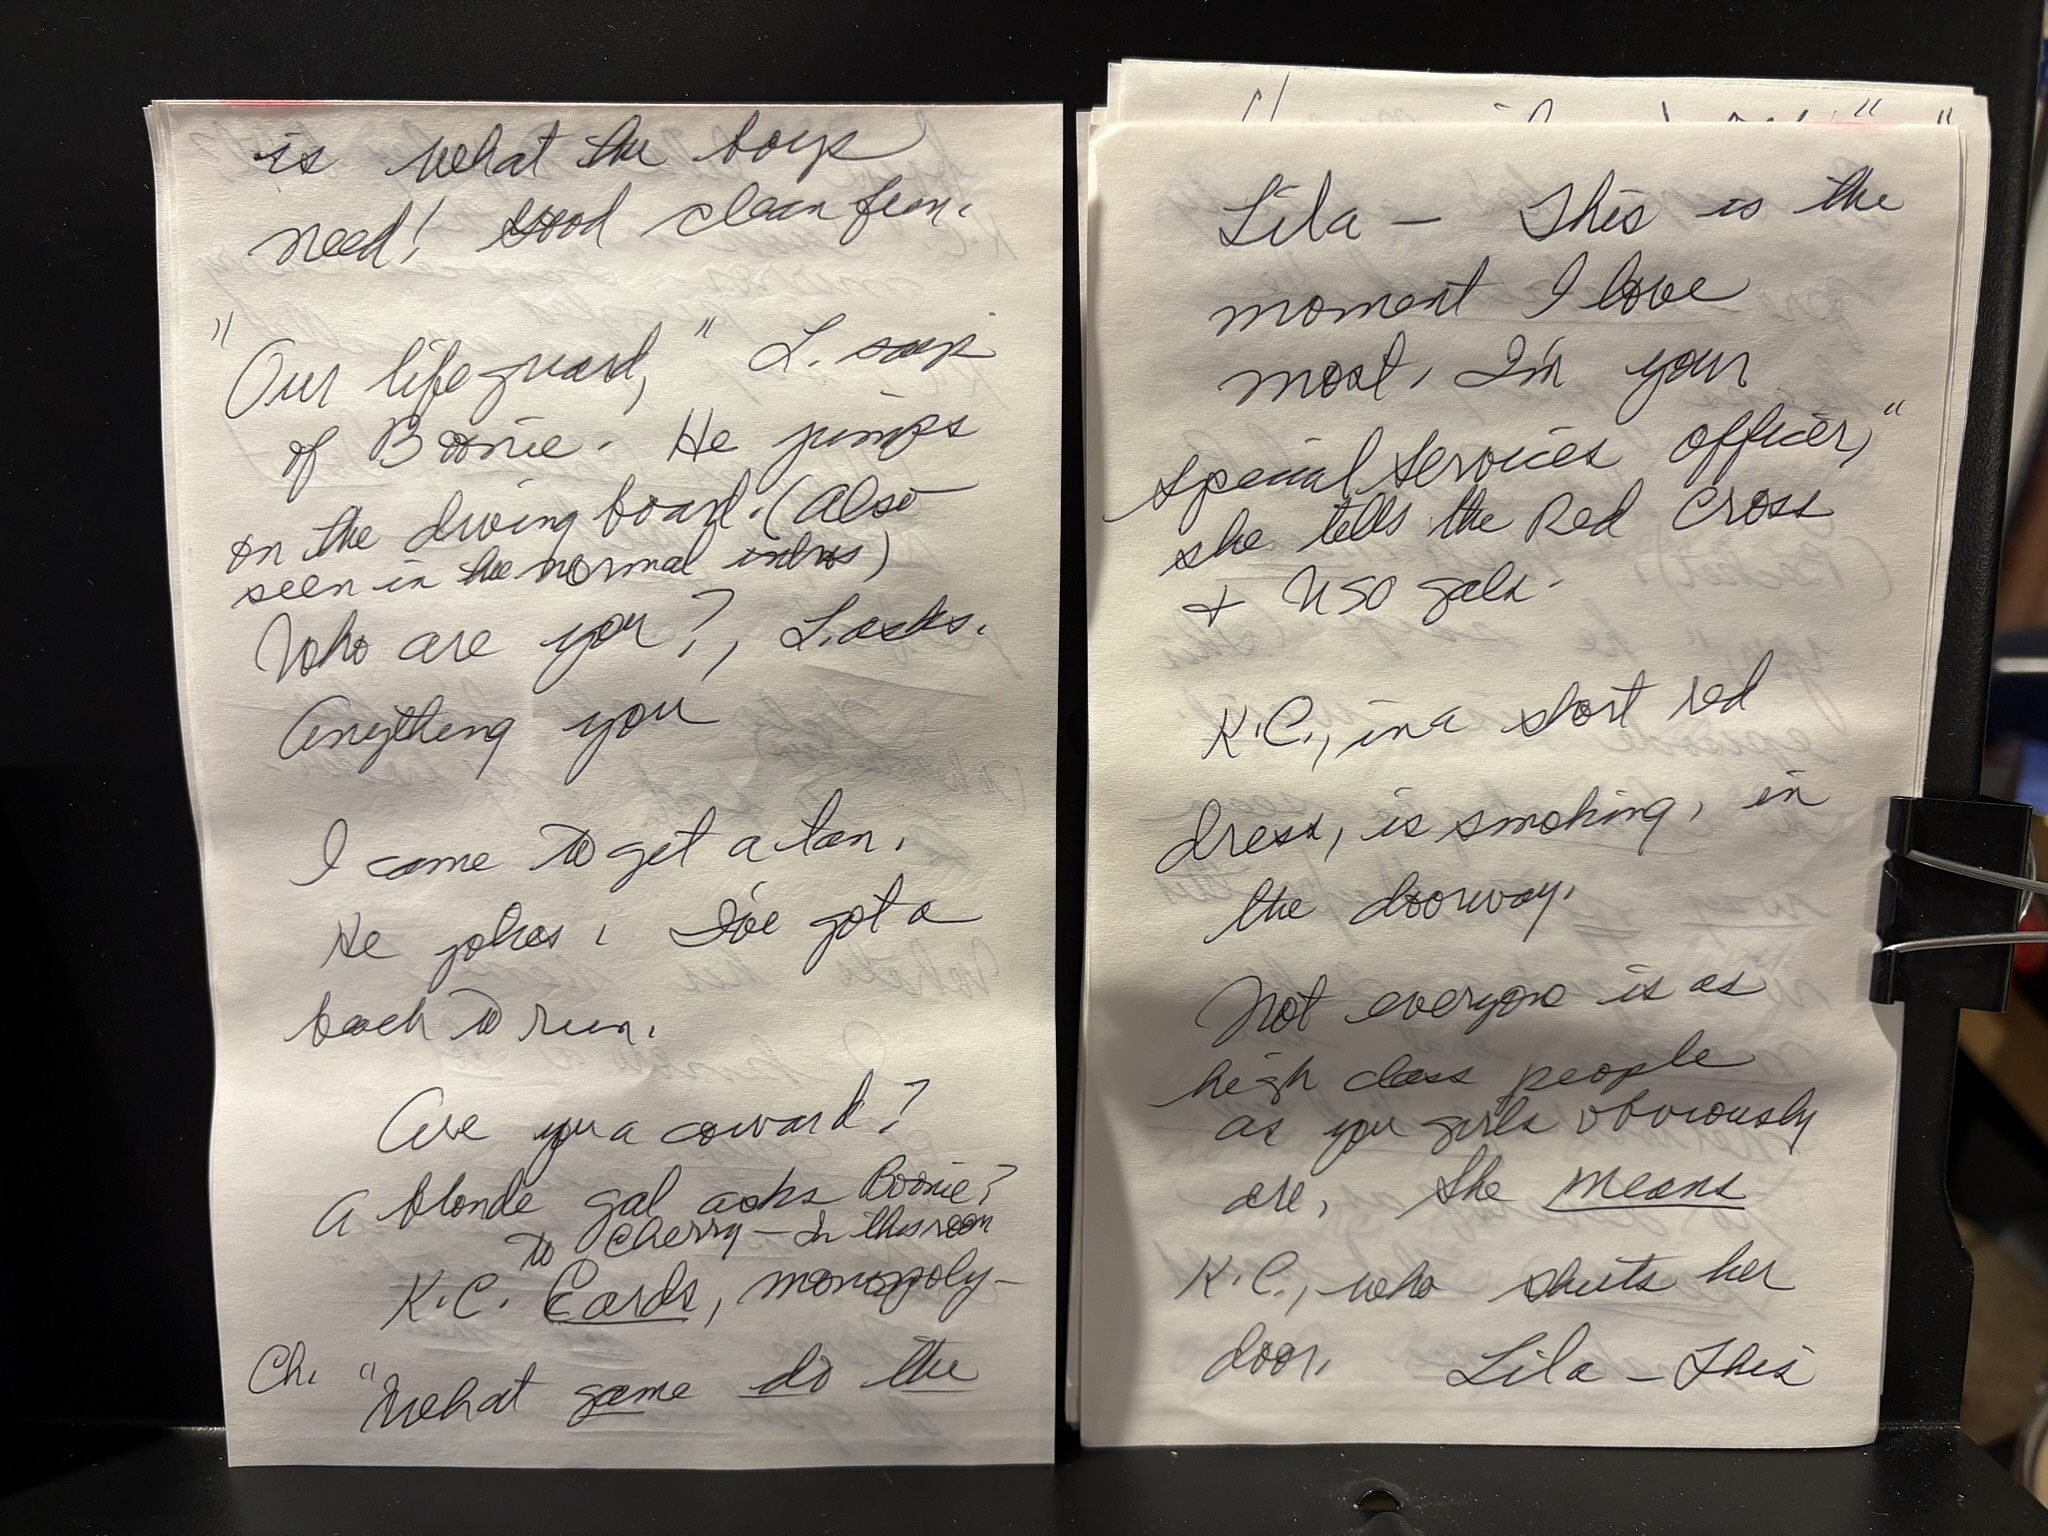 is what the boys
need! Good clean fun.
"Our lifeguard," L. says
of Boonie. He jumps
on the diving board. (Also
seen in the normal intros)
Who are you?, L. asks.
Anything you
I came to get a tan.
He jokes. I've got a
back to run.
Are you a coward?
A blonde gal asks Boonie?
to Cherry - In this room
K.C. Cards, monopoly-
Ch. "What game do the
Lila - This is the
moment I love
most. I'm your
special services officer,"
she tells the Red Cross
+ USO gals.
K.C., in a short red
dress, is smoking, in
the doorway.
Not everyone is as
high class people
as you girls obviously
are, She means
K.C., who shuts her
door. Lila - This